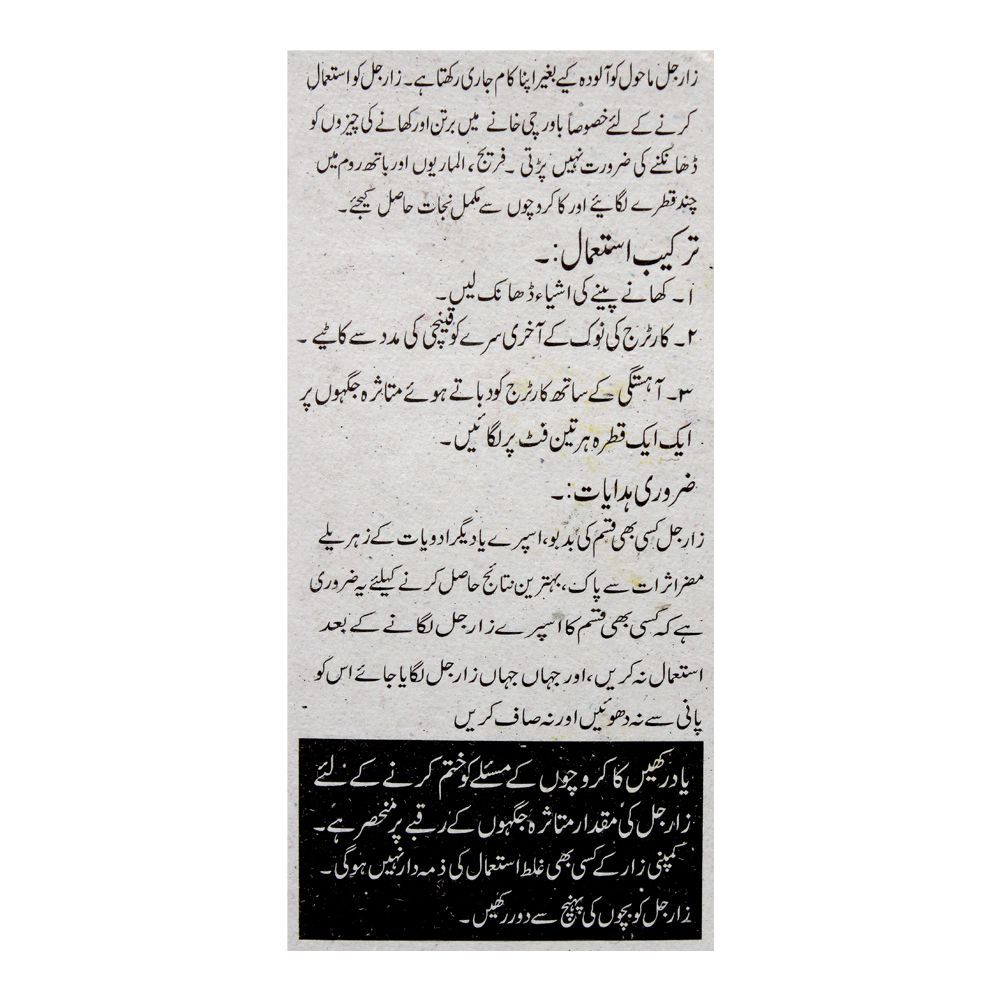 زار جل ماحول کو آلودہ کیے بغیر اپنا کام جاری رکھتا ہے۔ زار جل کو استعمال
کرنے کے لئے خصوصاً باورچی خانے میں برتن اور کھانے کی چیزوں کو
ڈھانکنے کی ضرورت نہیں پڑتی ۔ فریج، الماریوں اور باتھ روم میں
چند قطرے لگائیے اور کاکروچوں سے مکمل نجات حاصل کیجئے۔
ترکیب استعمال:۔
۱۔ کھانے پینے کی اشیاء ڈھانک لیں۔
۲۔ کارٹرج کی نوک کے آخری سرے کو قینچی کی مدد سے کاٹیے ۔
۳۔ آہستگی کے ساتھ کارٹرج کو دباتے ہوئے متاثرہ جگہوں پر
ایک ایک قطرہ ہر تین فٹ پر لگائیں۔
ضروری ہدایات:۔
زار جل کسی بھی قسم کی بدبو، اسپرے یا دیگر ادویات کے زہریلے
مضر اثرات سے پاک، بہترین نتائج حاصل کرنے کیلئے یہ ضروری
ہے کہ کسی بھی قسم کا اسپرے زار جل لگانے کے بعد
استعمال نہ کریں، اور جہاں جہاں زار جل لگایا جائے اس کو
پانی سے نہ دھوئیں اور نہ صاف کریں
یاد رکھیں کاکروچوں کے مسئلے کو ختم کرنے کے لئے
زار جل کی مقدار متاثرہ جگہوں کے رقبے پر منحصر ہے۔
کمپنی زار کے کسی بھی غلط استعمال کی ذمہ دار نہیں ہوگی۔
زار جل کو بچوں کی پہنچ سے دور رکھیں۔